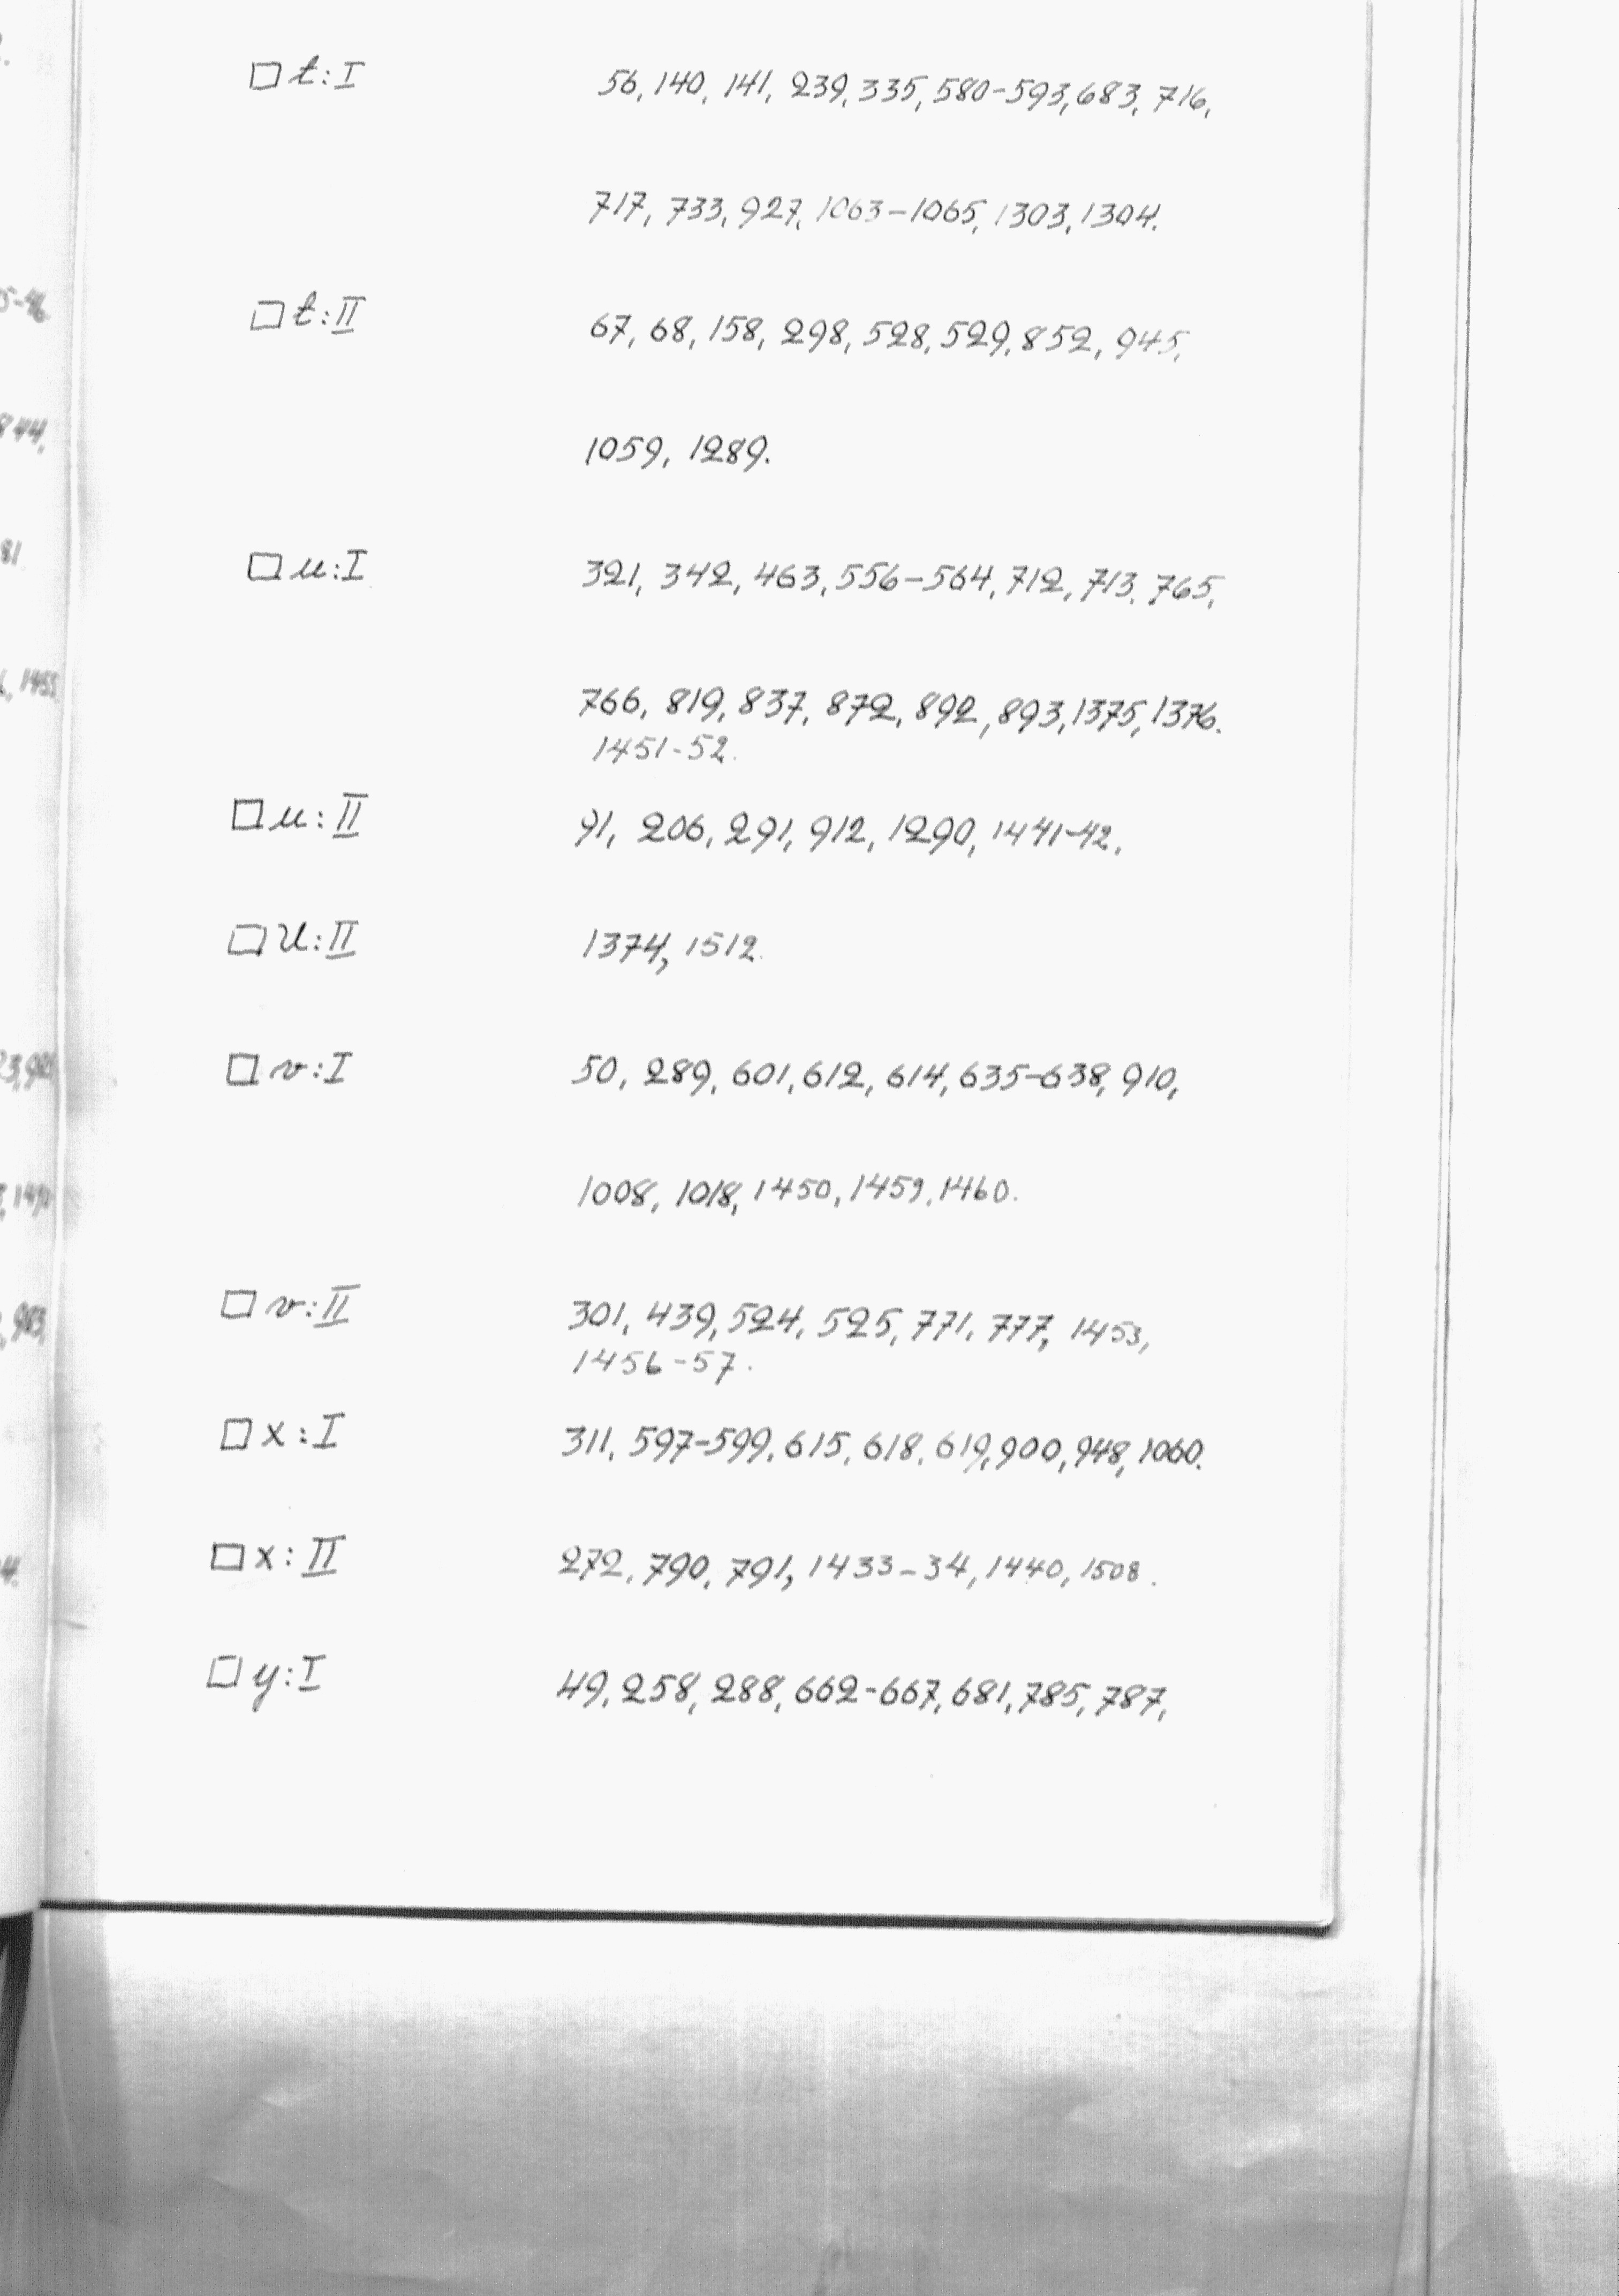 □ t:I 56, 140, 141, 239, 335, 580-593, 683, 716,
717, 733, 927, 1063-1065, 1303, 1304.
□ t:II 67, 68, 158, 298, 528, 529, 852, 945,
1059, 1289.
□ u:I 321, 342, 463, 556-564, 712, 713, 765,
766, 819, 837, 872, 892, 893, 1375, 1376.
1451-52.
□ u:II 91, 206, 291, 912, 1290, 1441-42,
□ U:II 1374, 1512.
□ v:I 50, 289, 601, 612, 614, 635-638, 910,
1008, 1018, 1450, 1459, 1460.
□ v:II 301, 439, 524, 525, 771, 777, 1453,
1456-57.
□ x:I 311, 597-599, 615, 618, 619, 900, 948, 1060.
□ x:II 272, 790, 791, 1433-34, 1440, 1508.
□ y:I 49, 258, 288, 662-667, 681, 785, 787,